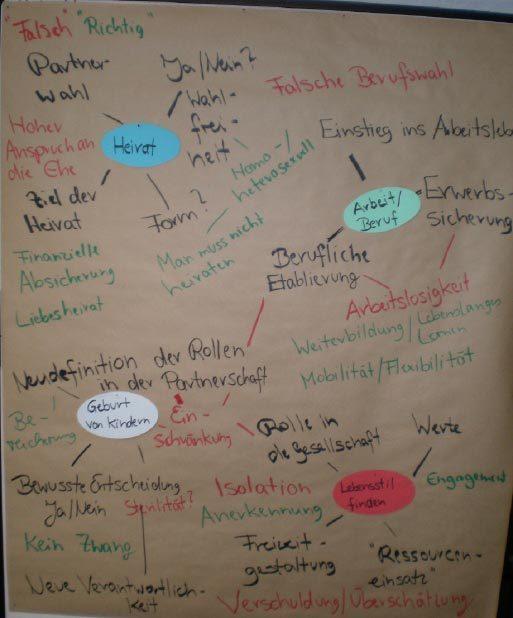 "Falsch" "Richtig"
Partner-
wahl
Ja/Nein?
Wahl-
frei-
heit
Falsche Berufswahl
Hoher
Anspruch an
die Ehe
Heirat
Homo-/
heterosexuell
Einstieg ins Arbeitsleb
Ziel der
Heirat
Form?
Man muss nicht
heiraten
Arbeit/
Beruf
Erwerbs-
sicherung
Finanzielle
Absicherung
Liebesheirat
Berufliche
Etablierung
Arbeitslosigkeit
Weiterbildung/Lebenslanges
Lernen
Mobilität/Flexibilität
Neudefinition der Rollen
in der Partnerschaft
Geburt
von Kindern
Be-
reicherung
Ein-
schränkung
Rolle in
die Gesellschaft
Werte
Bewusste Entscheidung
Ja/Nein
Sterilität?
Isolation
Anerkennung
Lebensstil
finden
Engagement
Kein Zwang
Freizeit-
gestaltung
"Ressourcen-
einsatz"
Neue Verantwortlich-
keit
Verschuldung/Überschätzung